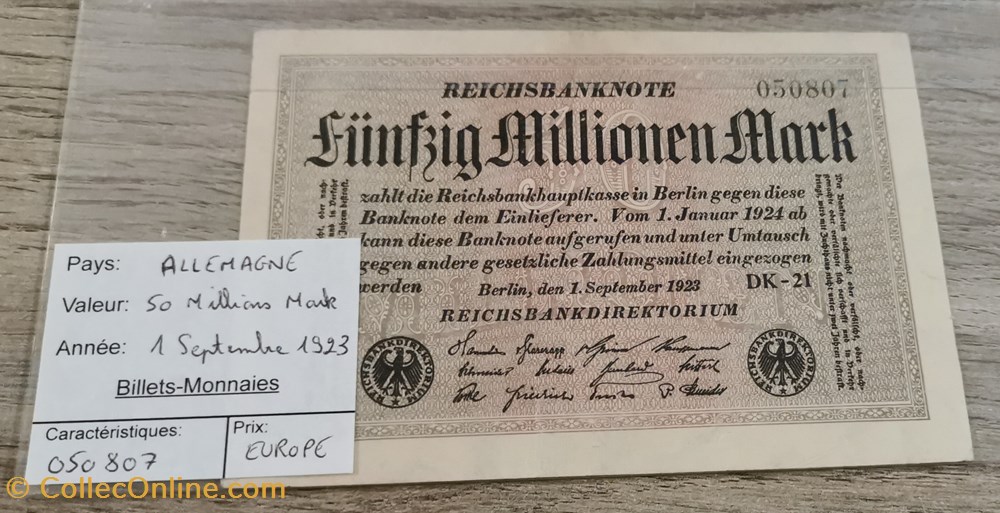 REICHSBANKNOTE
050807
Fünfzig Millionen Mark
zahlt die Reichsbankhauptkasse in Berlin gegen diese
Banknote dem Einlieferer. Vom 1. Januar 1924 ab
kann diese Banknote aufgerufen und unter Umtausch
gegen andere gesetzliche Zahlungsmittel eingezogen
werden
Berlin, den 1. September 1923
DK-21
REICHSBANKDIREKTORIUM
REICHSBANKDIREKTORIUM
REICHSBANKDIREKTORIUM
Pays: ALLEMAGNE
Valeur: 50 Millions Mark
Année: 1 Septembre 1923
Billets-Monnaies
Caractéristiques:
050807
Prix:
EUROPE
© CollecOnline.com